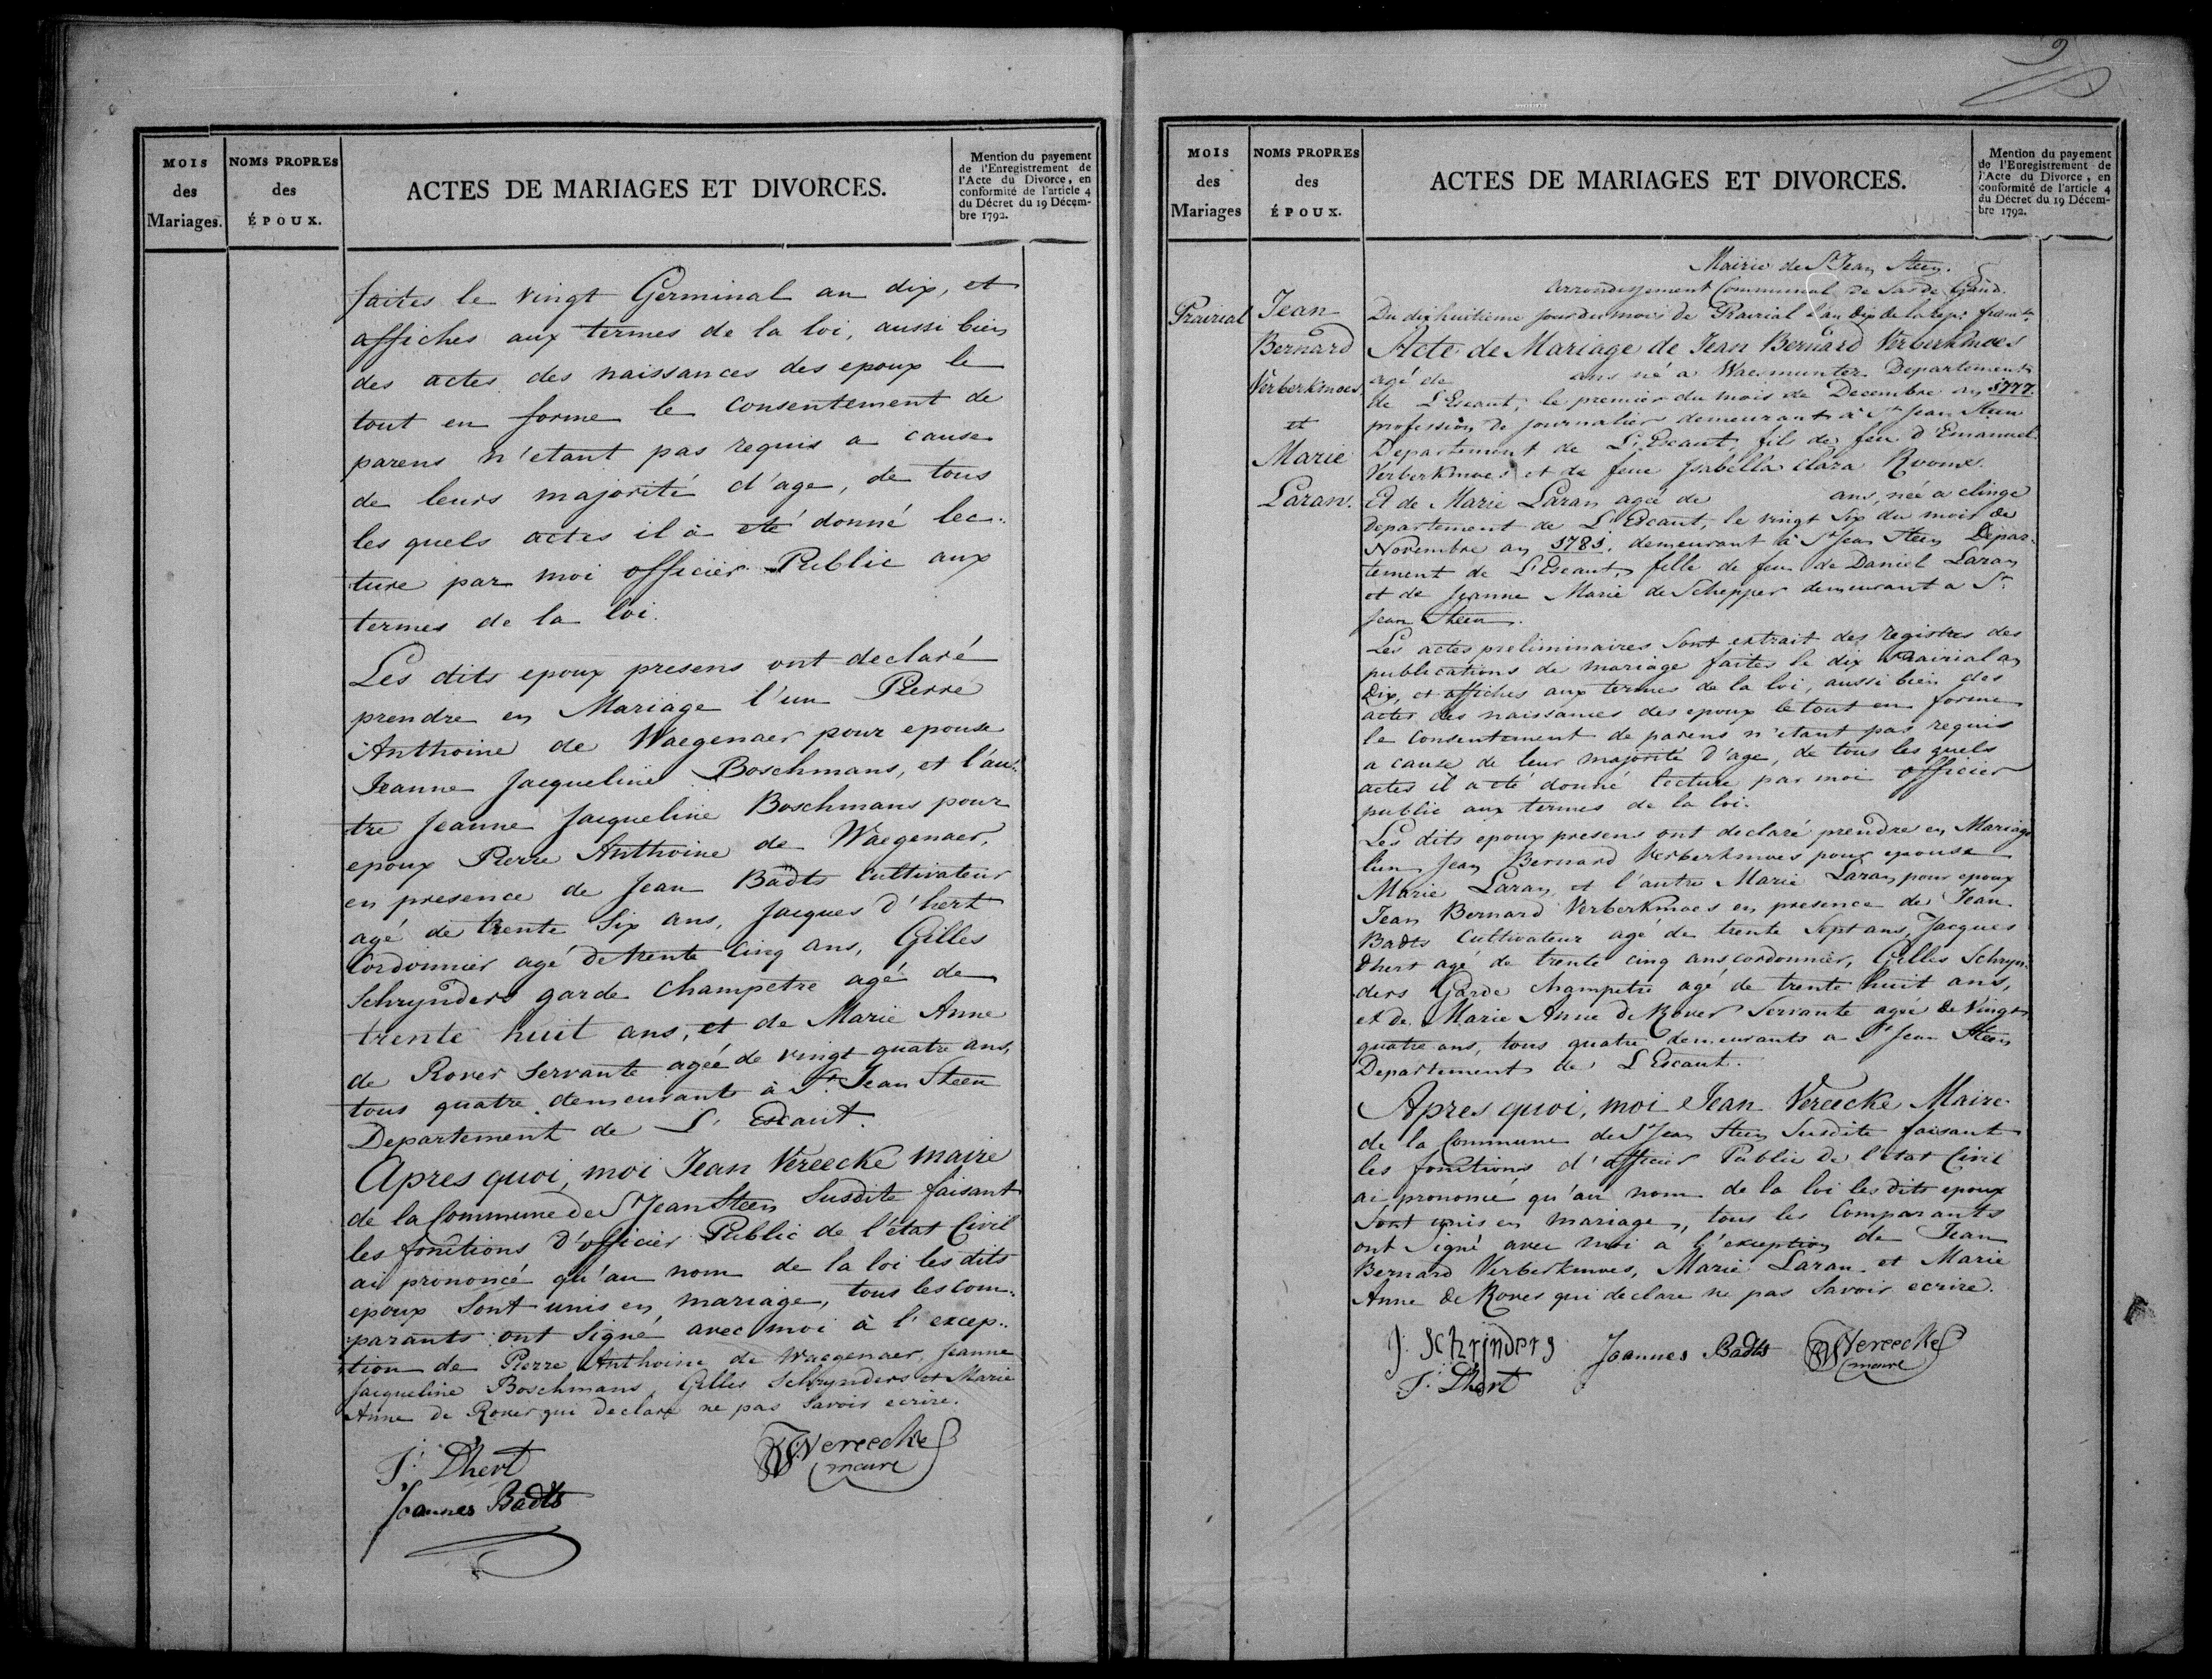 MOIS
des
Mariages.
NOMS PROPRES
des
ÉPOUX.
ACTES DE MARIAGES ET DIVORCES.
Mention du payement
de l'Enregistrement de
l'Acte du Divorce, en
conformité de l'article 4
du Décret du 19 Décem-
bre 1792.
faites le vingt Germinal an dix, et
affiches aux termes de la loi, aussi bien
des actes des naissances des epoux le
tout en forme le consentement de
parens n'etant pas requis a cause
de leurs majorité d'age, de tous
les quels actes il à eté donné lec-
ture par moi officier Public aux
termes de la loi.
Les dits epoux presens ont declaré
prendre en Mariage l'un Pierre
Anthoine de Waegenaer pour epouse
Jeanne Jacqueline Boschmans, et l'au-
tre Jeanne Jacqueline Boschmans pour
epoux Pierre Anthoine de Waegenaer,
en presence de Jean Badts cultivateur
agé de trente six ans, Jacques d'hert
Cordonnier agé de trente cinq ans, Gilles
Schrynders garde champetre agé de
trente huit ans, et de Marie Anne
de Rover servante agée de vingt quatre ans,
tous quatre demeurants à St. Jean Steen
Departement de L'Escaut.
Apres quoi, moi Jean Vereecke maire
de la Commune de St Jean Steen susdite faisant
les fonctions d'officier Public de l'état Civil
ai prononcé qu'au nom de la loi les dits
epoux sont unis en mariage, tous les com-
parants ont signé avec moi à l'excep-
tion de Pierre Anthoine de Waegenaer, Jeanne
Jacqueline Boschmans, Gilles Schrynders et Marie
Anne de Rover qui declare ne pas savoir ecrire.
J: Dhert
Vereecke
maire
Joannes Badts
9
MOIS
des
Mariages
NOMS PROPRES
des
ÉPOUX.
ACTES DE MARIAGES ET DIVORCES.
Mention du payement
de l'Enregistrement de
l'Acte du Divorce, en
conformité de l'article 4
du Décret du 19 Décem-
bre 1792.
Prairial
Jean
Bernard
Verberkmoes,
et
Marie
Laran.
Mairie de St Jean Steen.
arrondissement Communal de Sas de Gand.
Du dix huitieme jour du mois de Prairial l'an dix de la rep:
Acte de Mariage de Jean Bernard Verberkmoes
agé de ans né a Waesmunter Departement
de L'Escaut, le premier du mois de Decembre an 1777.
profession de journalier demeurant à St Jean Steen
Departement de L'Escaut, fils de feu d'Emanuel
Verberkmoes et de feue Isabella Clara Rooms.
Et de Marie Laran agée de ans, née a clinge
Departement de L'Escaut, le vingt six du mois de
Novembre an 1781. demeurant à St Jean Steen Depar-
tement de L'Escaut, fille de feu de Daniel Laran
et de Jeanne Marie de Schepper demeurant a St
Jean Steen.
Les actes preliminaires sont extrait des registres des
publications de mariage faites le dix Prairial an
Dix, et affiches aux termes de la loi, aussi bien des
actes des naissances des epoux le tout en forme
le consentement de parens n'etant pas requis
a cause de leur majorité d'age, de tous les quels
actes il a eté donné lecture par moi officier
public aux termes de la loi.
Les dits epoux presens ont declaré prendre en Mariage
l'un Jean Bernard Verberkmoes pour epouse
Marie Laran et l'autre Marie Laran pour epoux
Jean Bernard Verberkmoes en presence de Jean
Badts Cultivateur agé de trente sept ans, Jacques
Dhert agé de trente cinq ans cordonnier, Gilles Schryn-
ders Garde champetre agé de trente huit ans,
et de Marie Anne de Rover Servante agée de vingt
quatre ans, tous quatre demeurants a St Jean Steen
Departement de L'Escaut.
Apres quoi, moi Jean Vereecke Maire
de la Commune de St Jean Steen susdite faisant
les fonctions d'officier Public de l'etat Civil
ai prononcé qu'au nom de la loi les dits epoux
sont unis en mariage, tous les Comparants
ont signé avec moi a l'exception de Jean
Bernard Verberkmoes, Marie Laran et Marie
Anne de Rover qui declare ne pas savoir ecrire.
J. Schrinders
Joannes Badts
Vereecke
maire
J: Dhert